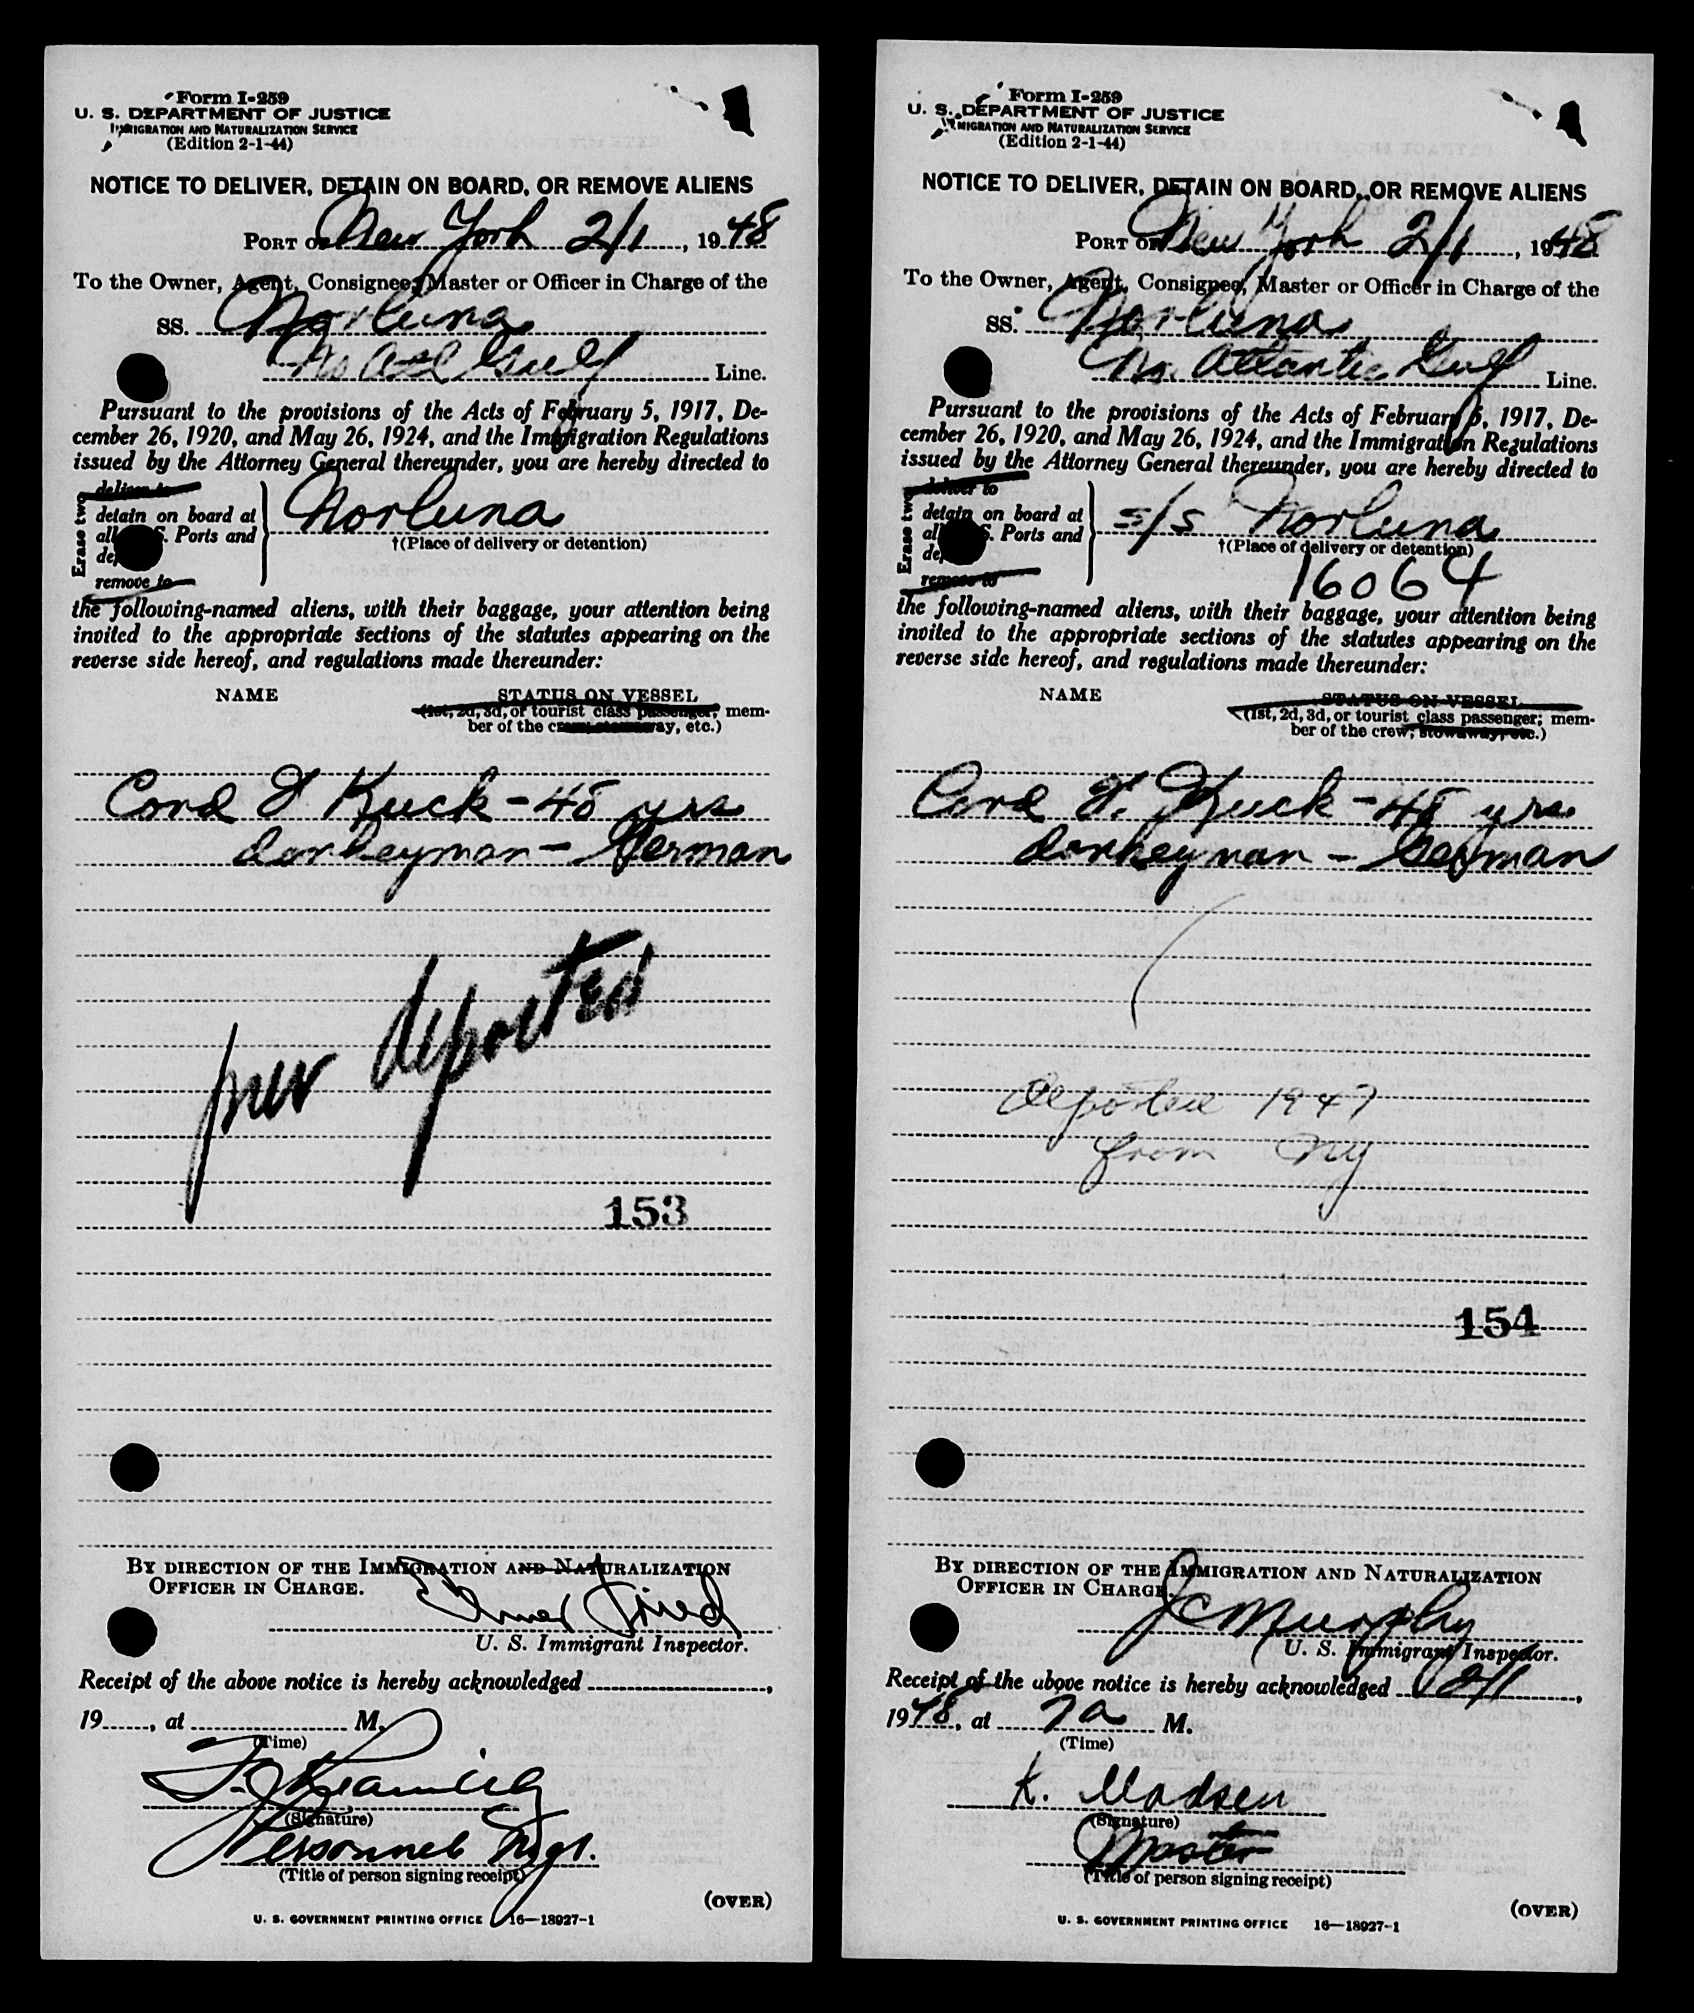 Form I-259
U. S. DEPARTMENT OF JUSTICE
IMMIGRATION AND NATURALIZATION SERVICE
(Edition 2-1-44)
NOTICE TO DELIVER, DETAIN ON BOARD, OR REMOVE ALIENS
PORT OF New York 2/1, 1948
To the Owner, Agent, Consignee, Master or Officer in Charge of the
SS. Norluna
No Atl Gulf Line.
Pursuant to the provisions of the Acts of February 5, 1917, De-
cember 26, 1920, and May 26, 1924, and the Immigration Regulations
issued by the Attorney General thereunder, you are hereby directed to
Erase two
deliver to
detain on board at
all U. S. Ports and
remove to
Norluna
†(Place of delivery or detention)
the following-named aliens, with their baggage, your attention being
invited to the appropriate sections of the statutes appearing on the
reverse side hereof, and regulations made thereunder:
NAME STATUS ON VESSEL
(1st, 2d, 3d, or tourist class passenger; mem-
ber of the crew; stowaway, etc.)
Cord F Kuck - 48 yrs
donkeyman - German
prev deported
153
BY DIRECTION OF THE IMMIGRATION AND NATURALIZATION
OFFICER IN CHARGE.
U. S. Immigrant Inspector.
Receipt of the above notice is hereby acknowledged ,
19 , at M.
(Time)
(Signature)
Personnel Mgr.
(Title of person signing receipt)
(OVER)
U. S. GOVERNMENT PRINTING OFFICE 16—18927-1
Form I-259
U. S. DEPARTMENT OF JUSTICE
IMMIGRATION AND NATURALIZATION SERVICE
(Edition 2-1-44)
NOTICE TO DELIVER, DETAIN ON BOARD, OR REMOVE ALIENS
PORT OF New York 2/1, 1948
To the Owner, Agent, Consignee, Master or Officer in Charge of the
SS. Norluna
No. Atlantic Gulf Line.
Pursuant to the provisions of the Acts of February 5, 1917, De-
cember 26, 1920, and May 26, 1924, and the Immigration Regulations
issued by the Attorney General thereunder, you are hereby directed to
Erase two
deliver to
detain on board at
all U. S. Ports and
remove to
s/s Norluna
†(Place of delivery or detention)
16064
the following-named aliens, with their baggage, your attention being
invited to the appropriate sections of the statutes appearing on the
reverse side hereof, and regulations made thereunder:
NAME STATUS ON VESSEL
(1st, 2d, 3d, or tourist class passenger; mem-
ber of the crew; stowaway, etc.)
Cord F. Kuck - 48 yrs
donkeyman - German
deported 1947
from NY
154
BY DIRECTION OF THE IMMIGRATION AND NATURALIZATION
OFFICER IN CHARGE.
J C Murphy
U. S. Immigrant Inspector.
Receipt of the above notice is hereby acknowledged 2/1,
1948, at 7 a M.
(Time)
K. Madsen
(Signature)
Master
(Title of person signing receipt)
(OVER)
U. S. GOVERNMENT PRINTING OFFICE 16—18927-1